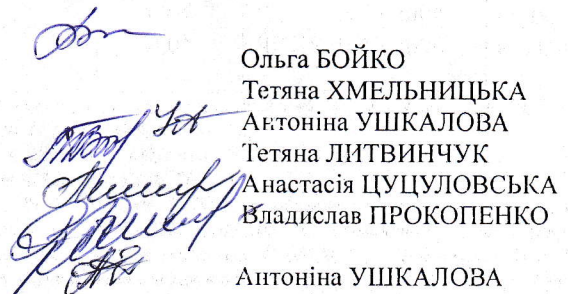 Ольга БОЙКО
Тетяна ХМЕЛЬНИЦЬКА
Антоніна УШКАЛОВА
Тетяна ЛИТВИНЧУК
Анастасія ЦУЦУЛОВСЬКА
Владислав ПРОКОПЕНКО
Антоніна УШКАЛОВА